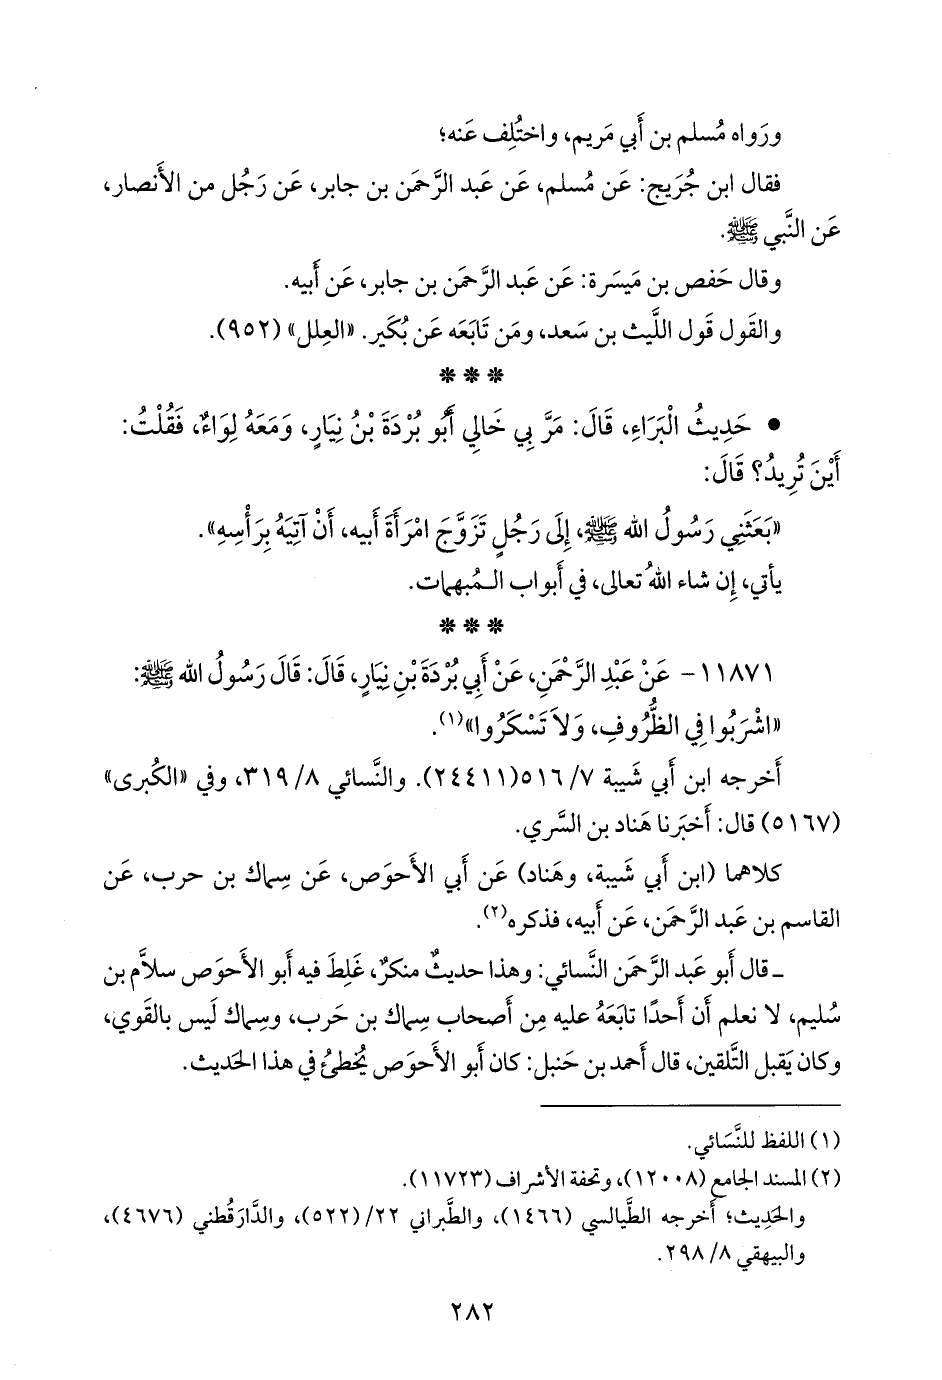 ورَواه مُسلم بن أَبي مَريم، واختُلِف عَنه؛
فقال ابن جُرَيج: عَن مُسلم، عَن عَبد الرَّحمَن بن جابر، عَن رَجُل من الأَنصار،
عَن النَّبي ﷺ.
وقال حَفص بن مَيسَرة: عَن عَبد الرَّحمَن بن جابر، عَن أَبيه.
والقَول قَول اللَّيث بن سَعد، ومَن تَابَعَه عَن بُكَير. «العِلل» (٩٥٢).
* * *
• حَدِيثُ الْبَرَاءِ، قَالَ: مَرَّ بِي خَالِي أَبُو بُرْدَةَ بْنُ نِيَارٍ، وَمَعَهُ لِوَاءٌ، فَقُلْتُ:
أَيْنَ تُرِيدُ؟ قَالَ:
«بَعَثَنِي رَسُولُ الله ﷺ، إِلَى رَجُلٍ تَزَوَّجَ امْرَأَةَ أَبِيه، أَنْ آتِيَهُ بِرَأْسِهِ».
يأتي، إِن شاء اللهُ تعالى، في أَبواب الـمُبهمات.
* * *
١١٨٧١- عَنْ عَبْدِ الرَّحْمَنِ، عَنْ أَبِي بُرْدَةَ بْنِ نِيَارٍ، قَالَ: قَالَ رَسُولُ الله ﷺ:
«اشْرَبُوا فِي الظُّرُوفِ، وَلاَ تَسْكَرُوا»(١).
أَخرجه ابن أَبي شَيبة ٧/ ٥١٦(٢٤٤١١). والنَّسائي ٨/ ٣١٩، وفي «الكُبرى»
(٥١٦٧) قال: أَخبَرنا هَناد بن السَّري.
كلاهما (ابن أَبي شَيبة، وهَناد) عَن أَبي الأَحوَص، عَن سِماك بن حرب، عَن
القاسم بن عَبد الرَّحمَن، عَن أَبيه، فذكره(٢).
ـ قال أَبو عَبد الرَّحمَن النَّسائي: وهَذا حديثٌ منكرٌ، غَلِطَ فيه أَبو الأَحوَص سلاَّم بن
سُليم، لا نعلم أَن أَحدًا تابَعَهُ عليه مِن أَصحاب سِماك بن حَرب، وسِماك لَيس بالقَوي،
وكان يَقبل التَّلقين، قال أَحمد بن حَنبل: كان أَبو الأَحوَص يُخطئُ في هذا الحَديث.
(١) اللفظ للنَّسَائي.
(٢) المسند الجامع (١٢٠٠٨)، وتحفة الأشراف (١١٧٢٣).
والحَدِيث؛ أَخرجه الطَّيالسي (١٤٦٦)، والطَّبراني ٢٢/ (٥٢٢)، والدَّارَقُطني (٤٦٧٦)،
والبيهقي ٨/ ٢٩٨.
٢٨٢